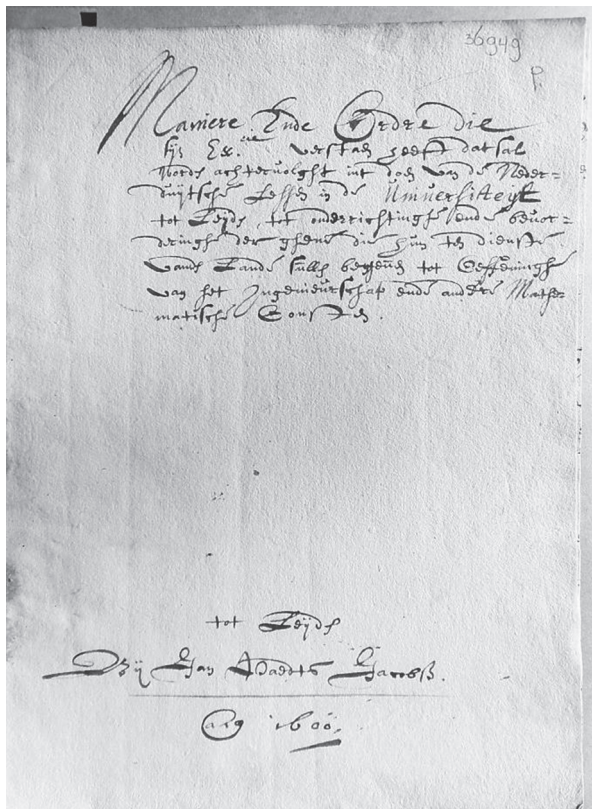 36949
P.
Maniere Ende Ordre die
sijn Ex.cie verstaen heeft dat sal
worden achtervolght int doen van de Neder=
duijtsche Lessen in de Universiteijt
tot Leijden, tot onderrichtinghe ende bevor=
deringhe der ghene die hun ten dienste
vande Lande sullen begeven tot Oeffeninghe
van het Ingenieurschap ende andere Mathe
matische Consten.
tot Leijden
Bij Jan Paedts Jacobsz.
Anno 1600.